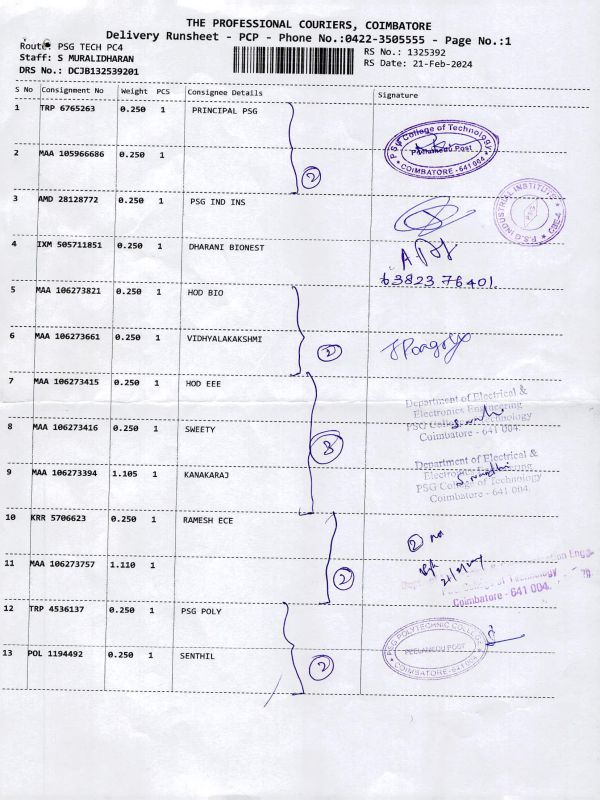 THE PROFESSIONAL COURIERS, COIMBATORE
Delivery Runsheet - PCP - Phone No.:0422-3505555 - Page No.:1
Route: PSG TECH PC4
RS No.: 1325392
Staff: S MURALIDHARAN
RS Date: 21-Feb-2024
DRS No.: DCJB132539201
S No Consignment No Weight PCS Consignee Details Signature
1 TRP 6765263 0.250 1 PRINCIPAL PSG
PSG College of Technology
Peelamedu Post
COIMBATORE - 641 004
2 MAA 105966686 0.250 1
2
3 AMD 28128772 0.250 1 PSG IND INS
P.S.G INDUSTRIAL INSTITUTE
4 IXM 505711851 0.250 1 DHARANI BIONEST
63823 76401
5 MAA 106273821 0.250 1 HOD BIO
6 MAA 106273661 0.250 1 VIDHYALAKAKSHMI
2
7 MAA 106273415 0.250 1 HOD EEE
Department of Electrical &
Electronics Engineering
PSG College of Technology
Coimbatore - 641 004.
8 MAA 106273416 0.250 1 SWEETY
3
9 MAA 106273394 1.105 1 KANAKARAJ
Department of Electrical &
Electronics Engineering
PSG College of Technology
Coimbatore - 641 004.
10 KRR 5706623 0.250 1 RAMESH ECE
2 no
11 MAA 106273757 1.110 1
2
Coimbatore - 641 004.
12 TRP 4536137 0.250 1 PSG POLY
PSG POLYTECHNIC COLLEGE
PEELAMEDU POST
COIMBATORE-641 004
13 POL 1194492 0.250 1 SENTHIL
2